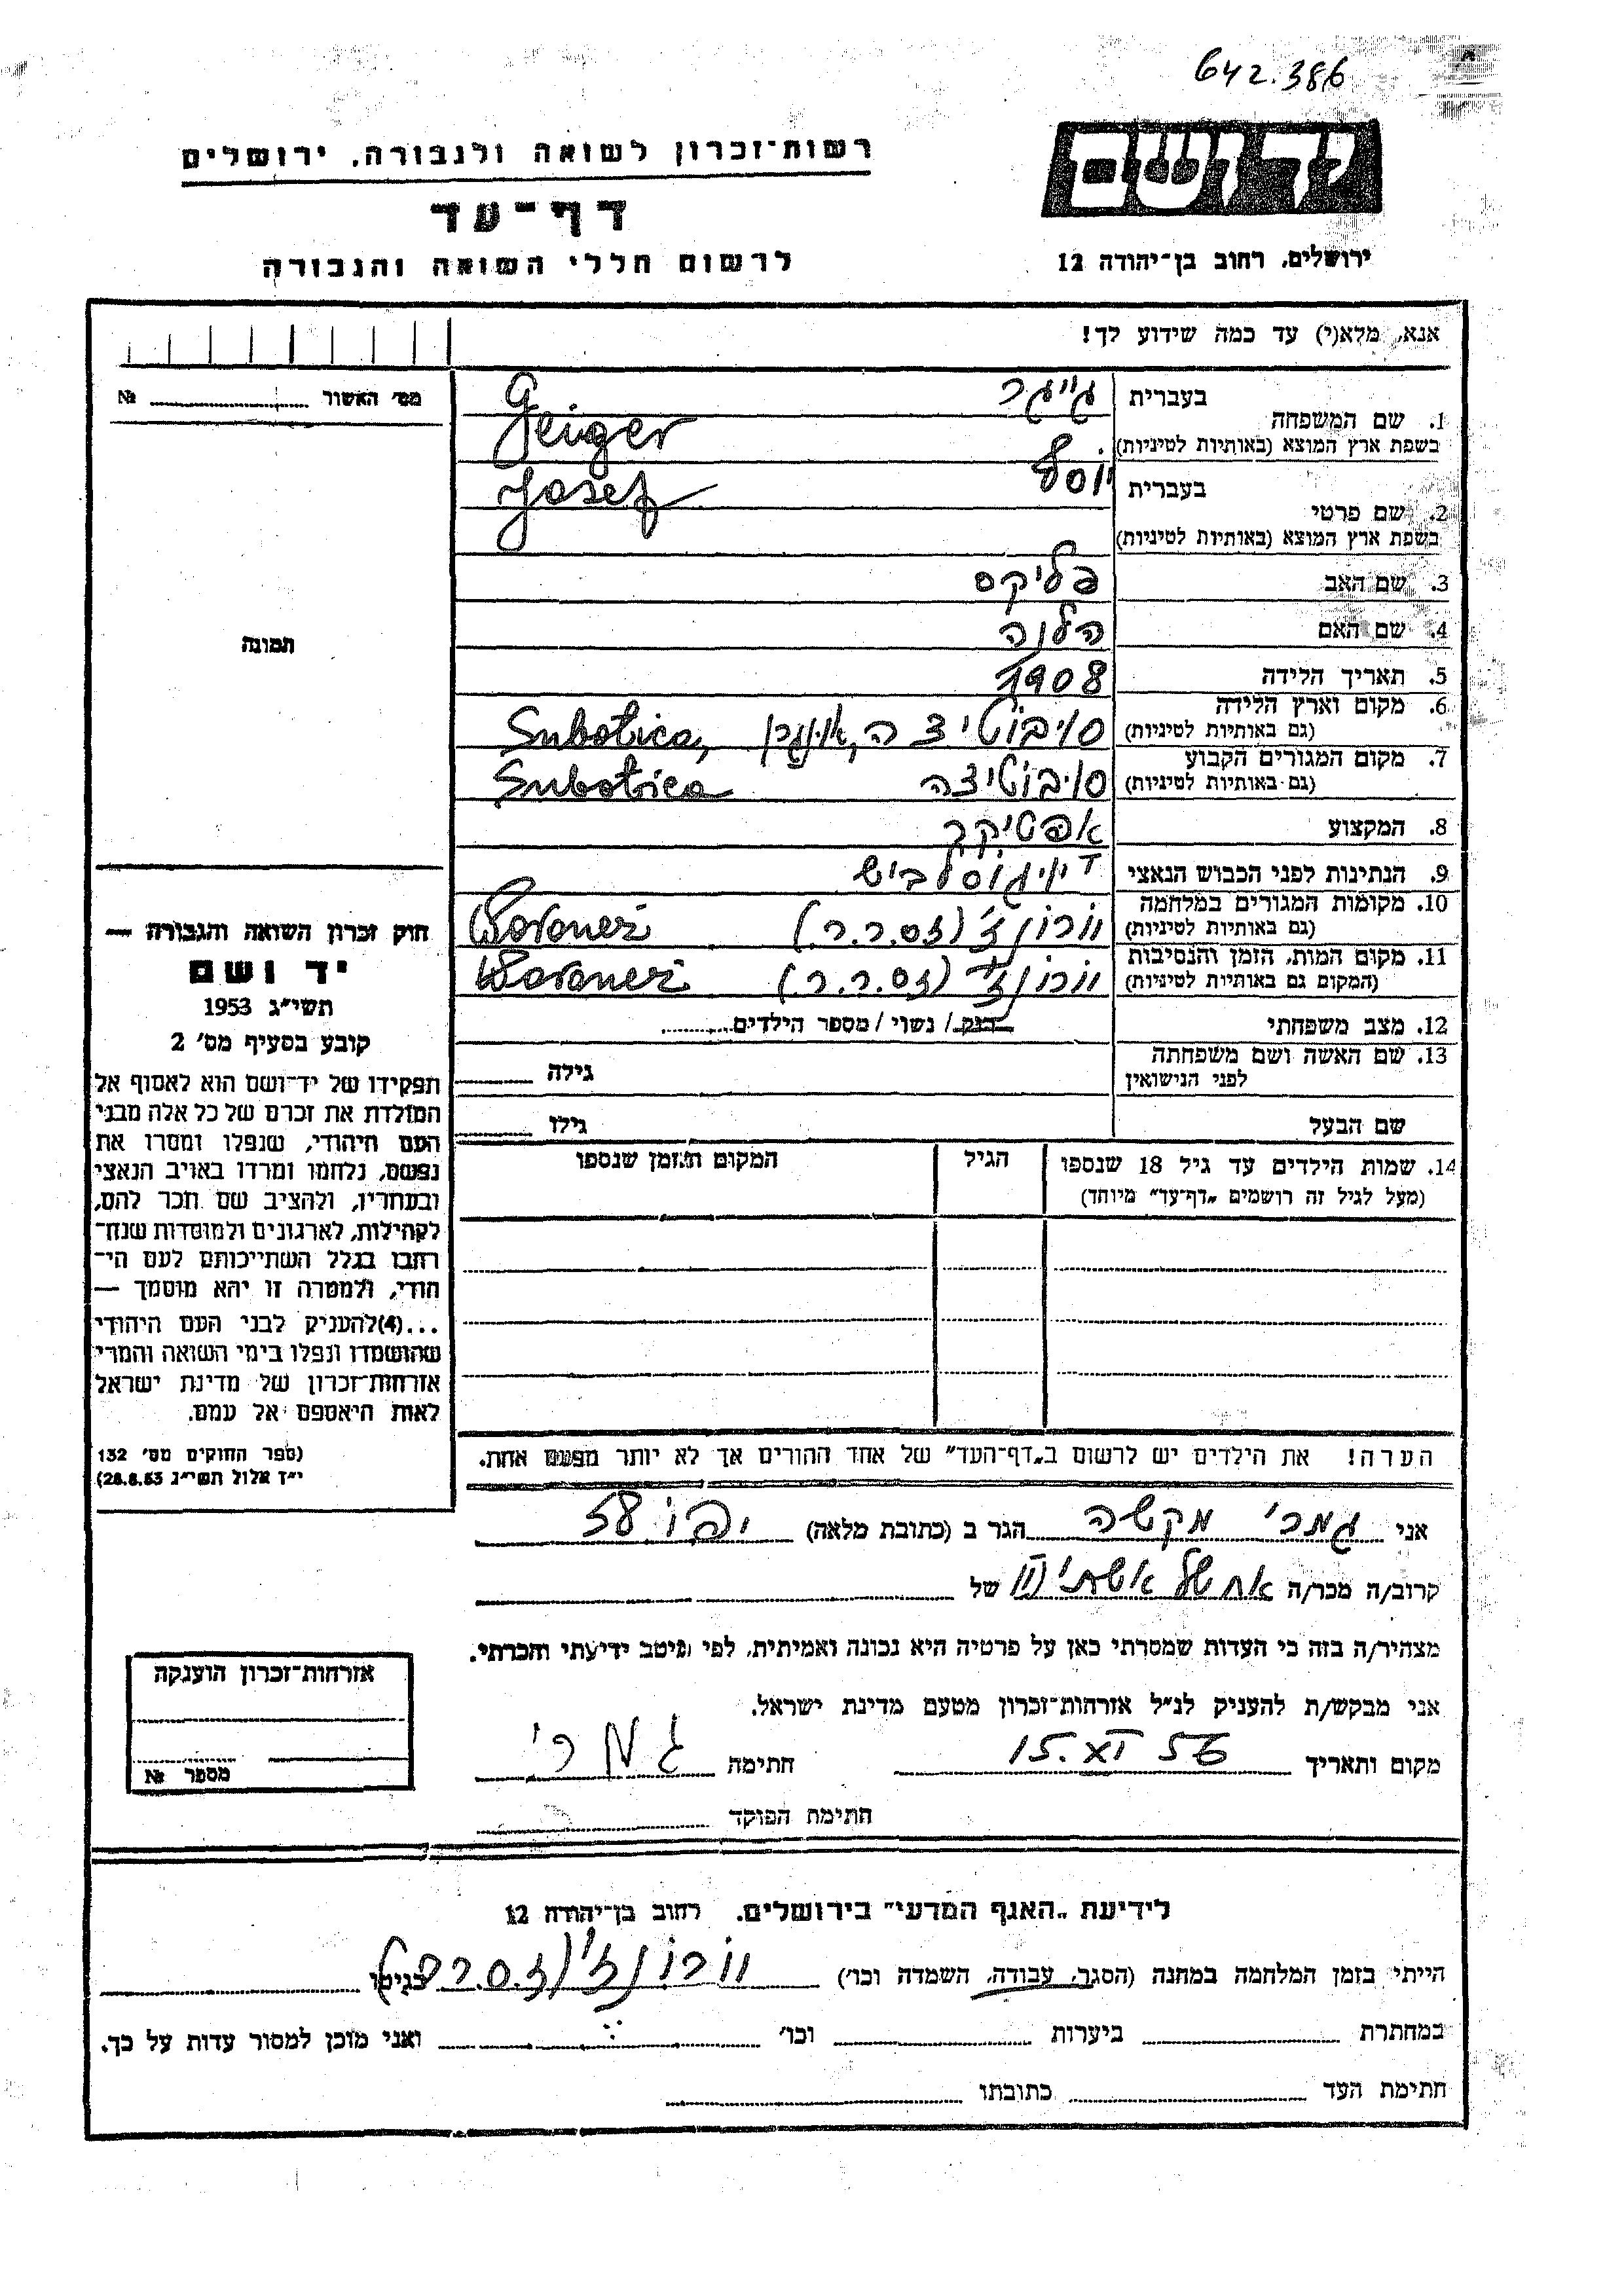 642.386
יד ושם
רשות־זכרון לשואה ולגבורה, ירושלים
דף־עד
לרשום חללי השואה והגבורה
ירושלים, רחוב בן־יהודה 12
אנא, מלא(י) עד כמה שידוע לך!
מס׳ האשור № 
1. שם המשפחה בעברית גייגר
בשפת ארץ המוצא (באותיות לטיניות) Geiger
2. שם פרטי בעברית יוסף
בשפת ארץ המוצא (באותיות לטיניות) Josef
3. שם האב פליקס
4. שם האם הלנה
תמונה
5. תאריך הלידה 1908
6. מקום וארץ הלידה (גם באותיות לטיניות) סובוטיצה, Subotica,
7. מקום המגורים הקבוע (גם באותיות לטיניות) סובוטיצה Subotica
8. המקצוע
9. הנתינות לפני הכבוש הנאצי
10. מקומות המגורים במלחמה (גם באותיות לטיניות) וורונז׳ (ס.ס.ר.ר.) Woronež
11. מקום המות, הזמן והנסיבות (המקום גם באותיות לטיניות) וורונז׳ (ס.ס.ר.ר.) Woronež
12. מצב משפחתי רווק / נשוי / מספר הילדים
13. שם האשה ושם משפחתה לפני הנישואין גילה
שם הבעל גילו
14. שמות הילדים עד גיל 18 שנספו (מעל לגיל זה רושמים „דף־עד״ מיוחד) הגיל המקום והזמן שנספו
חוק זכרון השואה והגבורה —
יד ושם
תשי״ג 1953
קובע בסעיף מס׳ 2
תפקידו של יד־ושם הוא לאסוף אל
המולדת את זכרם של כל אלה מבני
העם היהודי, שנפלו ומסרו את
נפשם, נלחמו ומרדו באויב הנאצי
ובעוזריו, ולהציב שם וזכר להם,
לקהילות, לארגונים ולמוסדות שנח־
רבו בגלל השתייכותם לעם הי־
הודי, ולמטרה זו יהא מוסמך —
...(4)להעניק לבני העם היהודי
שהושמדו ונפלו בימי השואה והמרי
אזרחות־זכרון של מדינת ישראל
לאות היאספם אל עמם.
(ספר החוקים מס׳ 132
י״ד אלול תשי״ג 28.8.53)
הערה! את הילדים יש לרשום ב„דף־העד״ של אחד ההורים אך לא יותר מפעם אחת.
אני גמרי הגר ב (כתובת מלאה) יפו
קרוב/ה מכר/ה אח של אשתי של
מצהיר/ה בזה כי העדות שמסרתי כאן על פרטיה היא נכונה ואמיתית, לפי מיטב ידיעתי והכרתי.
אני מבקש/ת להעניק לנ״ל אזרחות־זכרון מטעם מדינת ישראל.
מקום ותאריך 15. XI 56 חתימה גמרי
חתימת הפוקד
אזרחות־זכרון הוענקה
מספר №
לידיעת „האגף המדעי״ בירושלים, רחוב בן־יהודה 12
הייתי בזמן המלחמה במחנה (הסגר, עבודה, השמדה וכו׳) וורונז׳ בגיטו
במחתרת ביערות וכו׳ ואני מוכן למסור עדות על כך.
חתימת העד כתובתו